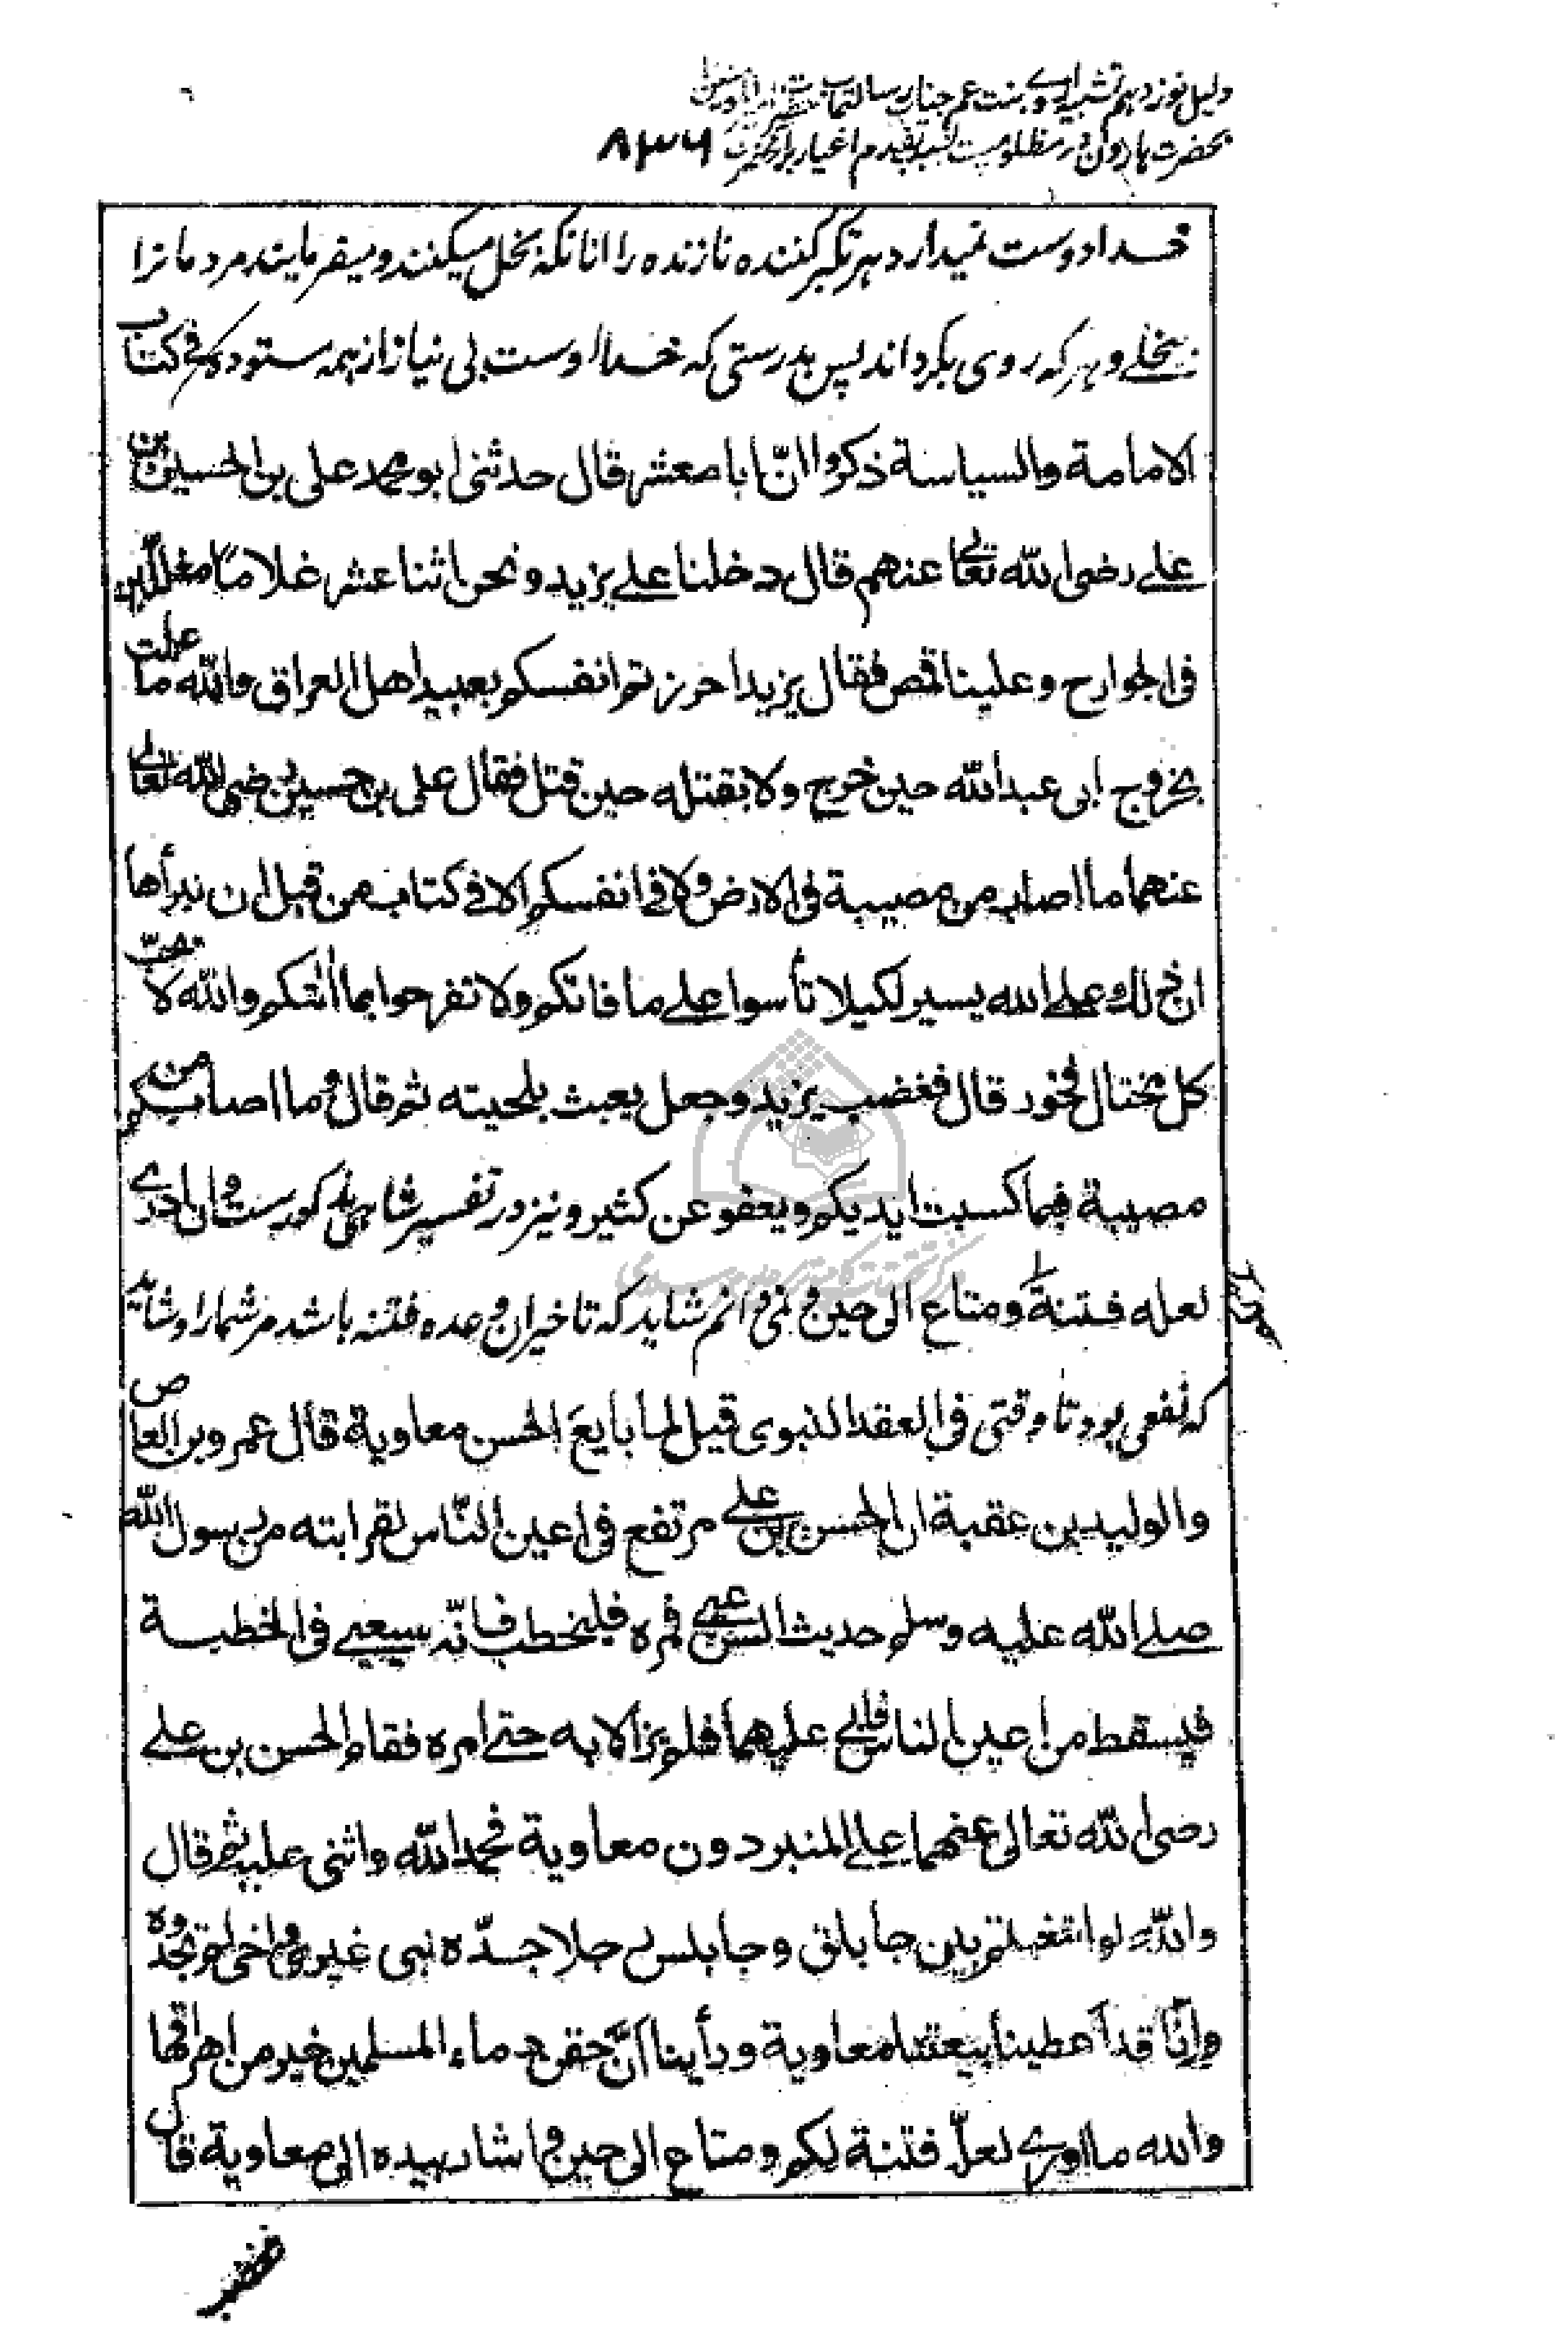 دلیل نوزدهم تشبیه اروی بنت عم جناب رسالتمآب
بحضرت هارون در مظلومیت بسبب تقدم اغیار بر آنحضرت ۸۳۶
خدا دوست نمیدارد هر تکبر کننده نازنده را انانکه بخل میکنند و میفرمایند مردمانرا
ببخلے و هر که روی بگرداند پس بدرستی که خدا اوست بی نیاز از همه ستوده و فے کتاب
الامامة والسیاسة ذکروا انّ ابا معشر قال حدثنی ابو محمد علی بن الحسین بن
علے رضی الله تعالی عنهم قال دخلنا علے یزید و نحن اثنا عشر غلاماً مغللین
فی الجوارح وعلینا قمص فقال یزید احرزتم انفسکم بعبید اهل العراق والله ما علمت
بخروج ابی عبدالله حین خرج ولا بقتله حین قتل فقال علی بن حسین رضی الله تعالی
عنهما ما اصاب من مصیبة فی الارض ولا فے انفسکم الا فے کتاب من قبل ان نبرأها
ان ذلك علے الله یسیر لکیلا تأسوا علے ما فاتکم ولا تفرحوا بما اٰتٰکم والله لا یحبّ
کل مختال فخور قال فغضب یزید وجعل یعبث بلحیته ثم قال وما اصابکم من
مصیبة فبما کسبت ایدیکم ویعفو عن کثیر و نیز در تفسیر شاهی مذکورست وان ادرے
لعله فتنة ومتاع الی حین و نمی دانم شاید که تاخیر ان وعده فتنه باشد مر شما را و شاید
که نفعی بود تا وقتی فی العقد النبوی قیل لما بایع الحسن معاویة قال عمرو بن العاص
والولید بن عقبة ان الحسن بن علے مرتفع فی اعین النّاس لقرابته من رسول الله
صلے الله علیه وسلم حدیث السن عیے فمره فلیخطب فانّه سیعیے فی الخطبة
فیسقط من اعین الناس فابے علیهما فلم یزالا به حتے امره فقام الحسن بن علے
رضی الله تعالی عنهما علے المنبر دون معاویة فحمد الله واثنی علیه ثم قال
والله لو ابتغیتم بین جابلق وجابلس رجلا جدّه نبی غیری واخی لم تجدوه
وانّا قد اعطینا بیعتنا معاویة ورأینا انّ حقن دماء المسلمین خیر من اهراقها
والله ما ادری لعلّه فتنة لکم ومتاع الی حین واشار بیده الی معاویة قال
فغضب